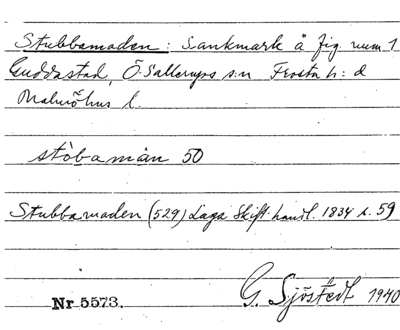 Stubbamaden: Sankmark å fig. num 1
Guddastad, Ö. Sallerups s:n Frosta h:d
Malmöhus l.
stòbamàn 50
Stubbamaden (529) Laga Skift. handl. 1834 s. 59
Nr 5573. G. Sjöstedt 1940